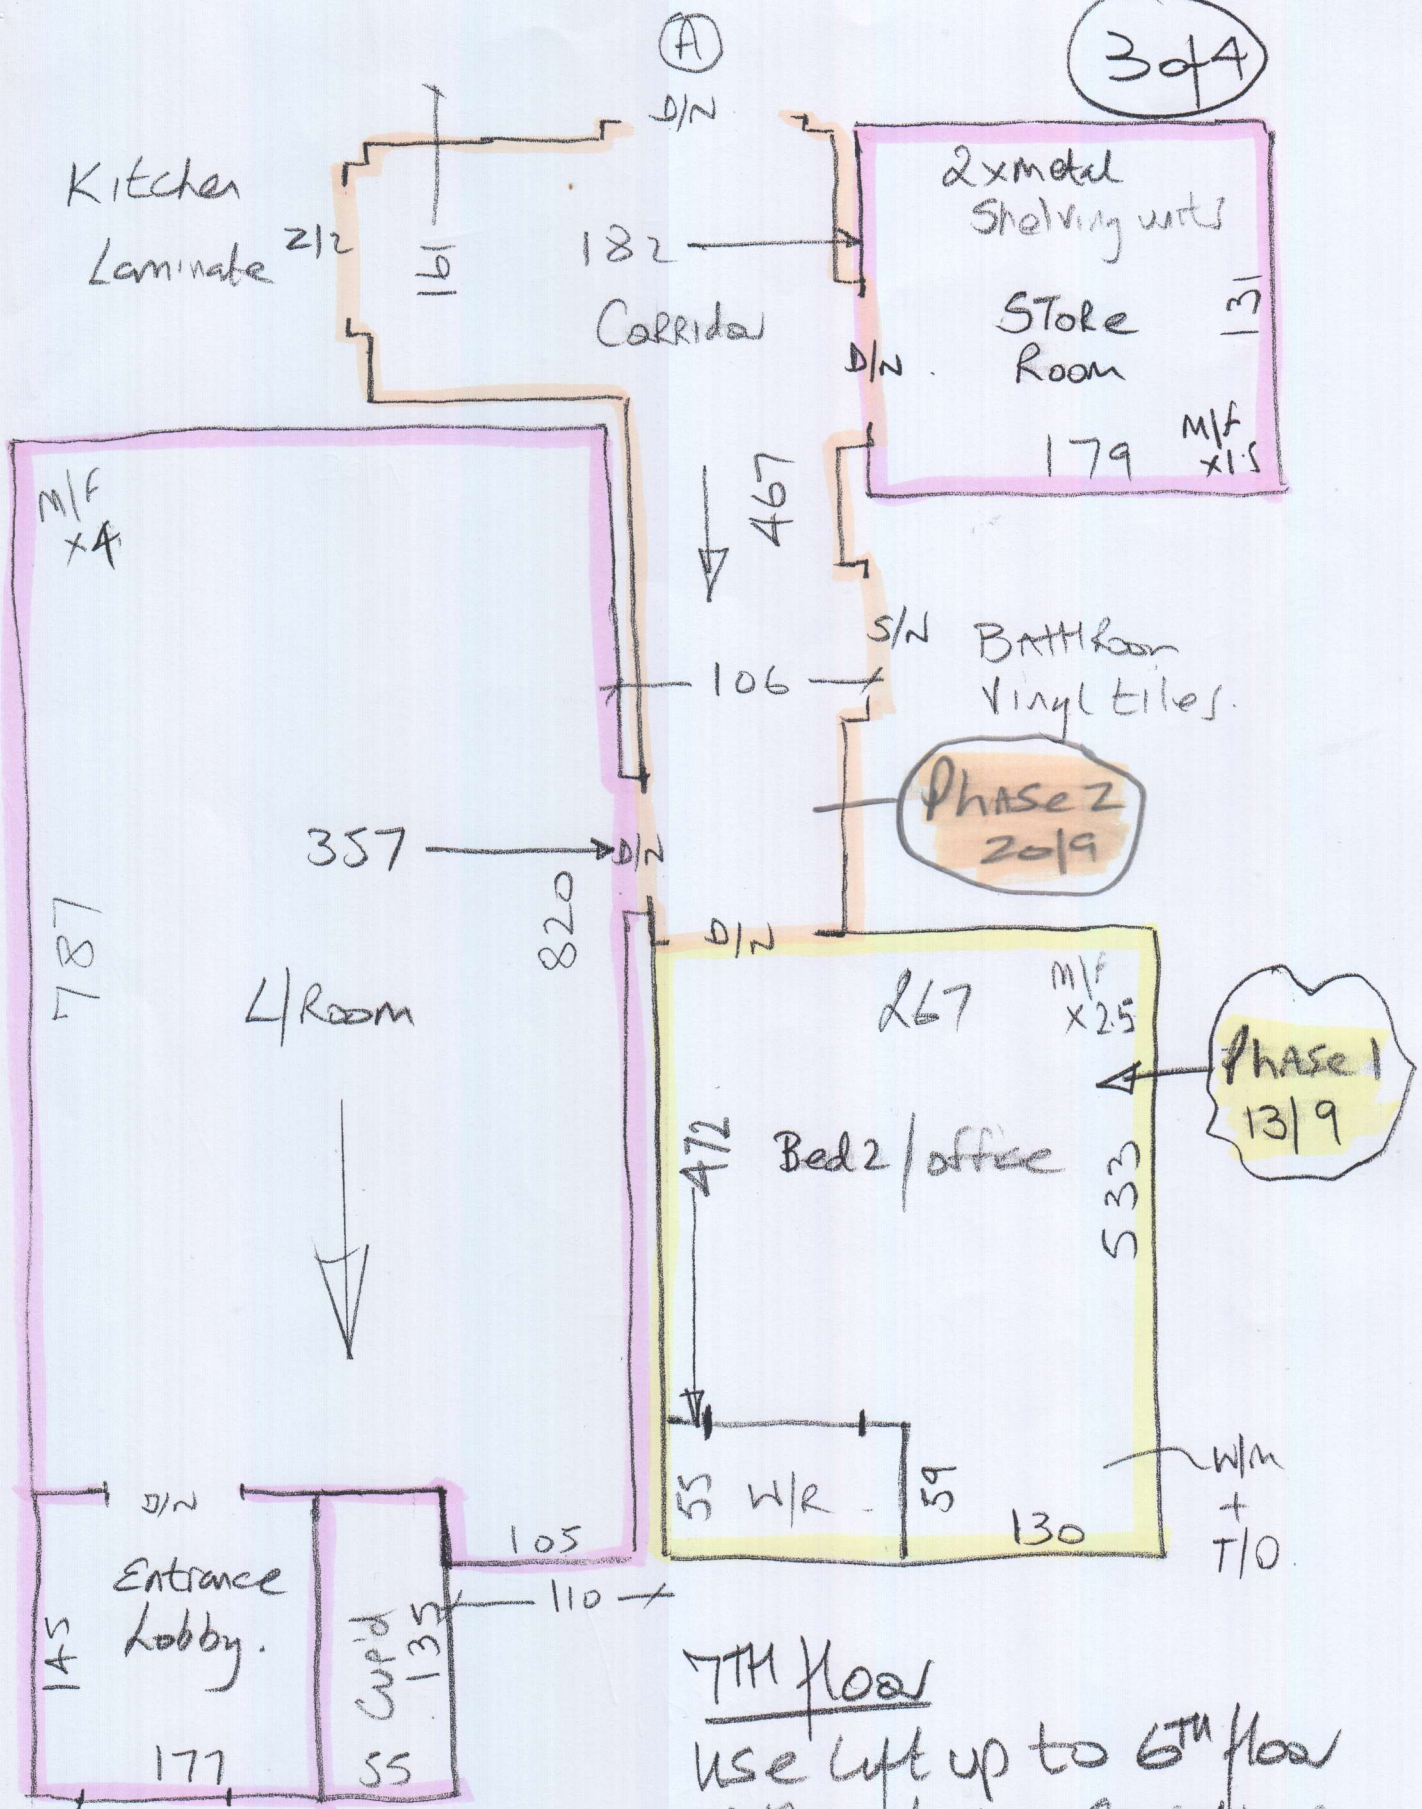 A
3of4
D/N
Kitchen
Laminate
212
161
182
Corridor
2xmetal
Shelving units
Store
Room
131
D/N
179
M/F
x1.5
M/F
x4
467
106
S/N
Bathroom
Vinyl tiles.
Phase 2
20/9
357
D/N
820
787
L/Room
D/N
267
M/F
x2.5
Phase 1
13/9
472
Bed2/office
533
55
W/R
59
130
W/M
+
T/O
D/N
105
110
Entrance
Lobby.
145
177
Cup'd
135
55
7TH floor
Use lift up to 6TH floor